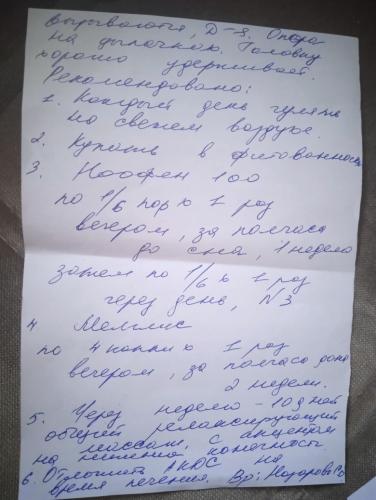 вызываются, D=S. Опора
на цыпочках. Головку
хорошо удерживает.
Рекомендовано:
1. Каждый день гулять
на свежем воздухе.
2. Купать в фитованночках
3. Ноофен 100
по 1/6 пор х 1 раз
вечером, за полчаса
до сна, 1 неделю
затем по 1/6 х 1 раз
через день, N3
4 Меллис
по 4 капли х 1 раз
вечером, за полчаса до сна
2 недели.
5. Через неделю - 10 дней
общий релаксирующий
массаж, с акцентом
на нижние конечности.
6. Отложить АКДС на
время лечения. Вр: